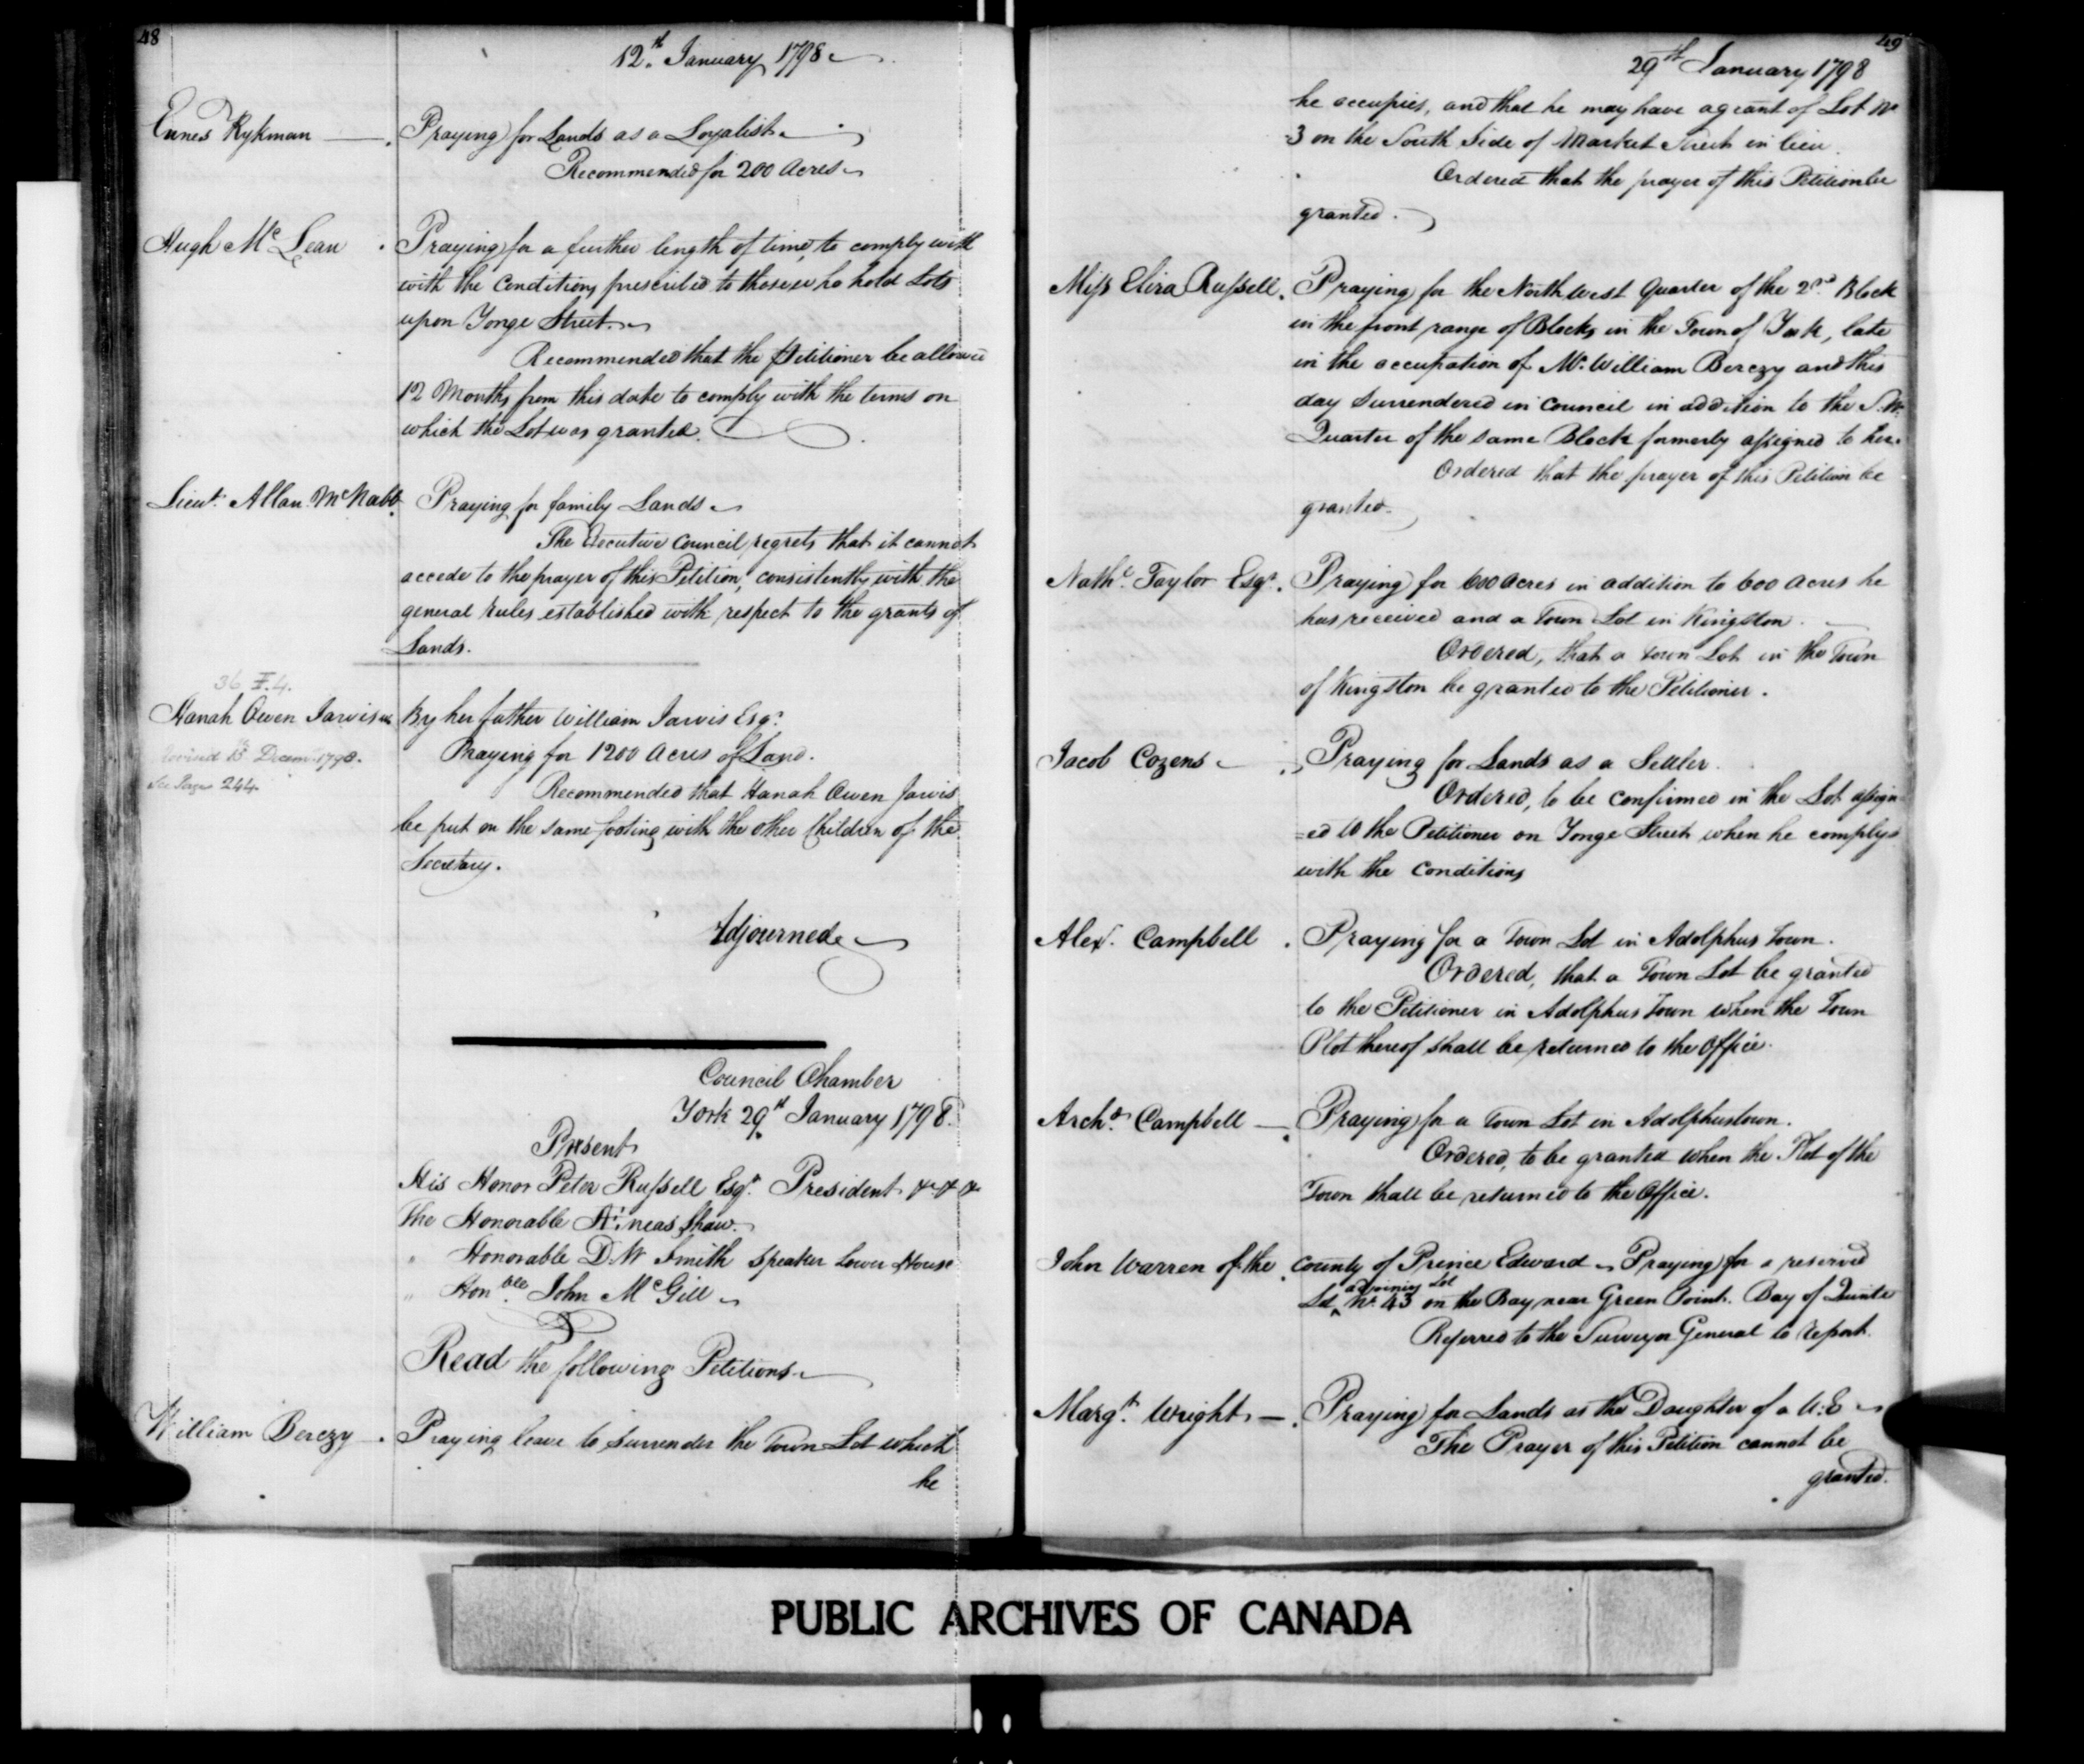 48
12th January 1798
Ennes Rykman
Praying for Lands as a Loyalist
Recommended for 200 Acres
Hugh McLean
Praying for a further length of time, to comply with
with the Conditions prescribed to those who hold Lots
upon Yonge Street
Recommended that the Petitioner be allowed
12 Months from this date to comply with the terms on
which the Lot was granted.
Lieut. Allan McNabb
Praying for family Lands
The Executive Council regrets that it cannot
accede to the prayer of this Petition, consistently with the
general rules established with respect to the grants of
Lands.
Hanah Owen Jarvis
By her father William Jarvis Esqr.
Revised 15 Decemr 1798.
See Page 244.
Praying for 1200 Acres of Land.
Recommended that Hanah Owen Jarvis
be put on the same footing with the other Children of the
Secretary.
Adjourned
Council Chamber
York 29th January 1798.
Present
His Honor Peter Russell Esqr. President &c &c &c
The Honorable Æneas Shaw.
" Honorable D W Smith Speaker Lower House
" Honble John McGill
Read the following Petitions
William Berczy
Praying leave to surrender the Town Lot which
he
49
29th January 1798
he occupies, and that he may have a grant of Lot No
3 on the South Side of Market Street in lieu.
Ordered that the prayer of this Petition be
granted.
Miss Eliza Russell.
Praying for the North West Quarter of the 2nd Block
in the front range of Blocks in the Town of York, late
in the occupation of Mr. William Berczy and this
day Surrendered in Council in addition to the S. W.
Quarter of the same Block formerly assigned to her.
Ordered that the prayer of this Petition be
granted.
Nathl. Taylor Esqr.
Praying for 600 Acres in addition to 600 Acres he
has received and a Town Lot in Kingston.
Ordered, that a Town Lot in the Town
of Kingston be granted to the Petitioner.
Jacob Cozens
Praying for Lands as a Settler.
Ordered, to be confirmed in the Lot assign
=ed to the Petitioner on Yonge Street when he complys
with the Conditions
Alexr. Campbell
Praying for a Town Lot in Adolphus Town.
Ordered, that a Town Lot be granted
to the Petitioner in Adolphus Town when the Town
Plot thereof shall be returned to the Office.
Archd. Campbell
Praying for a Town Lot in Adolphustown.
Ordered, to be granted when the Plot of the
Town shall be returned to the Office.
John Warren of the County of Prince Edward Praying for a reserved
adjoining Lot
Lot No. 43 on the Bay near Green Point. Bay of Quinte
Referred to the Surveyor General to report.
Margt. Wright
Praying for Lands as the Daughter of a U.E
The Prayer of this Petition cannot be
granted.
PUBLIC ARCHIVES OF CANADA